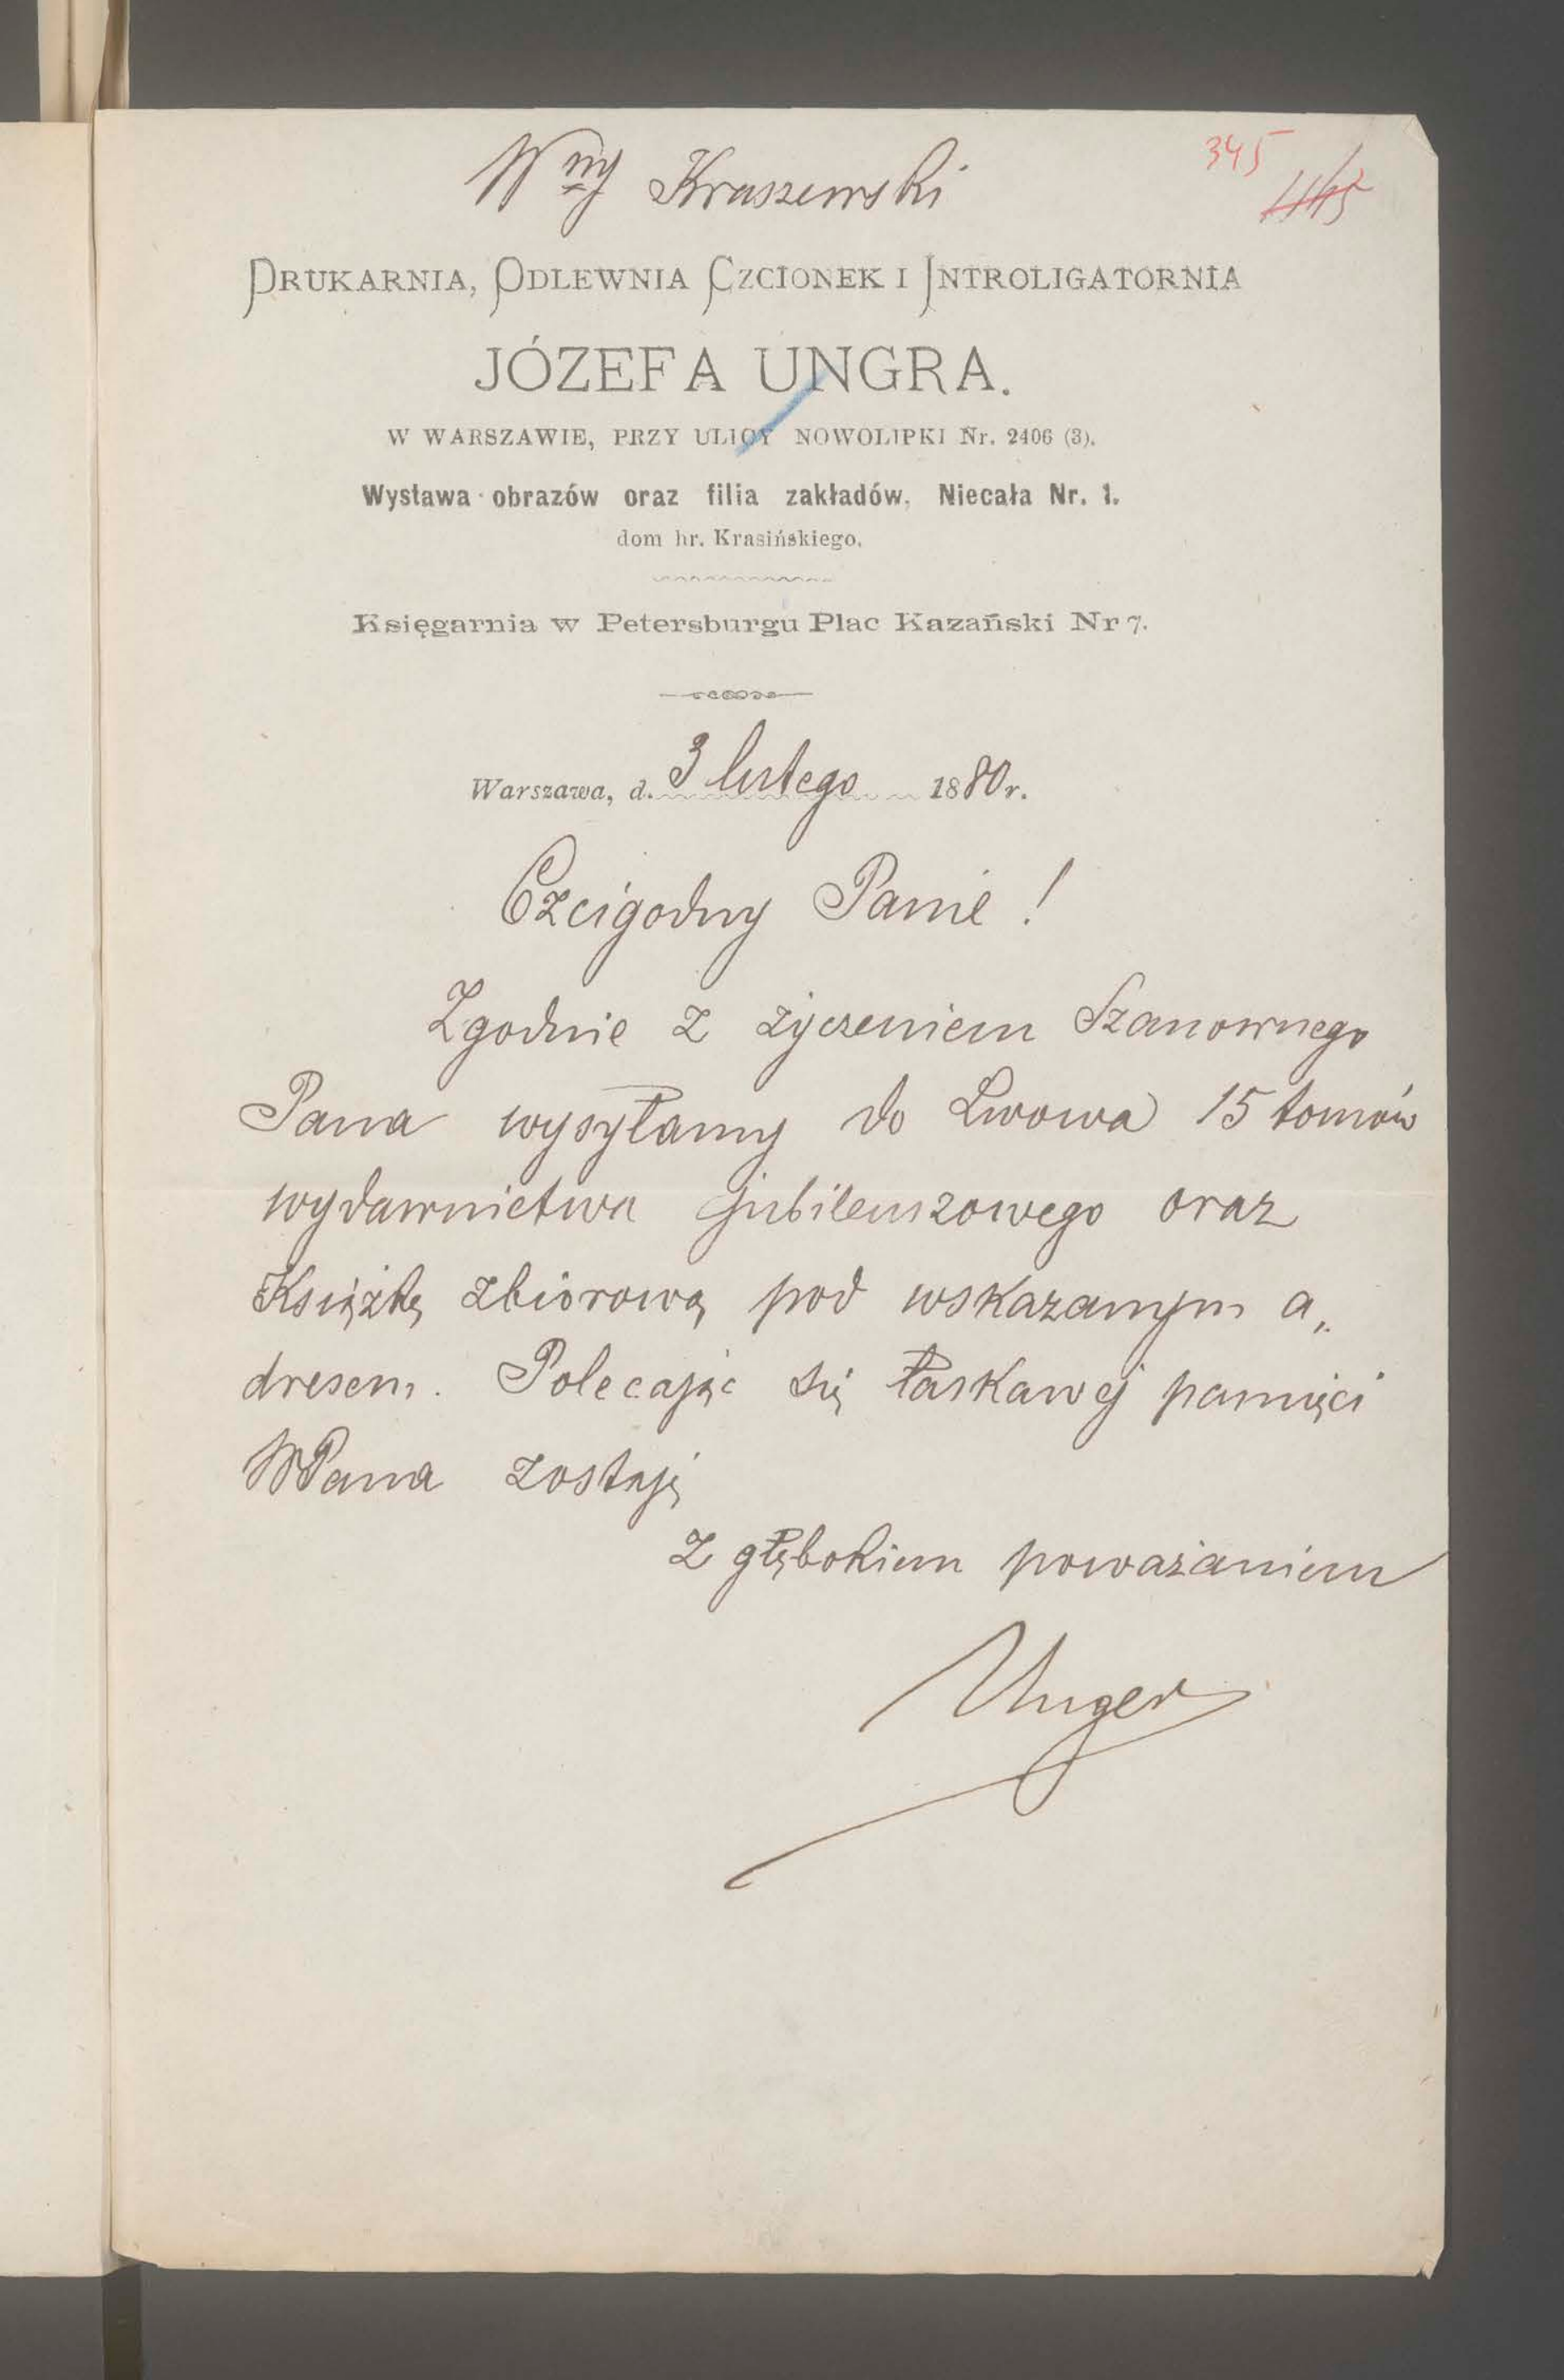 345
445
Wny Kraszewski
DRUKARNIA, ODLEWNIA CZCIONEK I INTROLIGATORNIA
JÓZEFA UNGRA.
W WARSZAWIE, PRZY ULICY NOWOLIPKI Nr. 2406 (3).
Wystawa obrazów oraz filia zakładów, Niecała Nr. 1.
dom hr. Krasińskiego.
Księgarnia w Petersburgu Plac Kazański Nr 7.
Warszawa, d. 3 lutego 1880 r.
Czcigodny Panie!
Zgodnie z życzeniem Szanownego
Pana wysyłamy do Lwowa 15 tomów
wydawnictwa jubileuszowego oraz
Książkę zbiorową pod wskazanym a„
dresem. Polecając się łaskawej pamięci
WPana zostaję
z głębokiem poważaniem
Unger